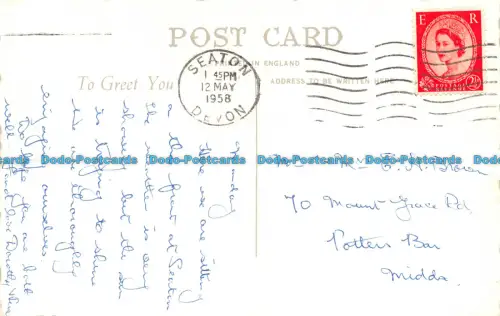 POST CARD
PRINTED IN ENGLAND
ADDRESS TO BE WRITTEN HERE
To Greet You
SEATON
1 45PM
12 MAY
1958
DEVON
E R
POSTAGE
REVENUE
2½D
Monday
Here we are sitting
on the front at Seaton
the weather is very
showery but the sun
is trying to shine
thoroughly
enjoying ourselves
Hope you are both
well
love Dorothy
70 Mount Grace Rd,
Potters Bar
Middx.
Dodo-Postcards Dodo-Postcards Dodo-Postcards Dodo-Postcards Dodo-Postcards Dodo-Postcards